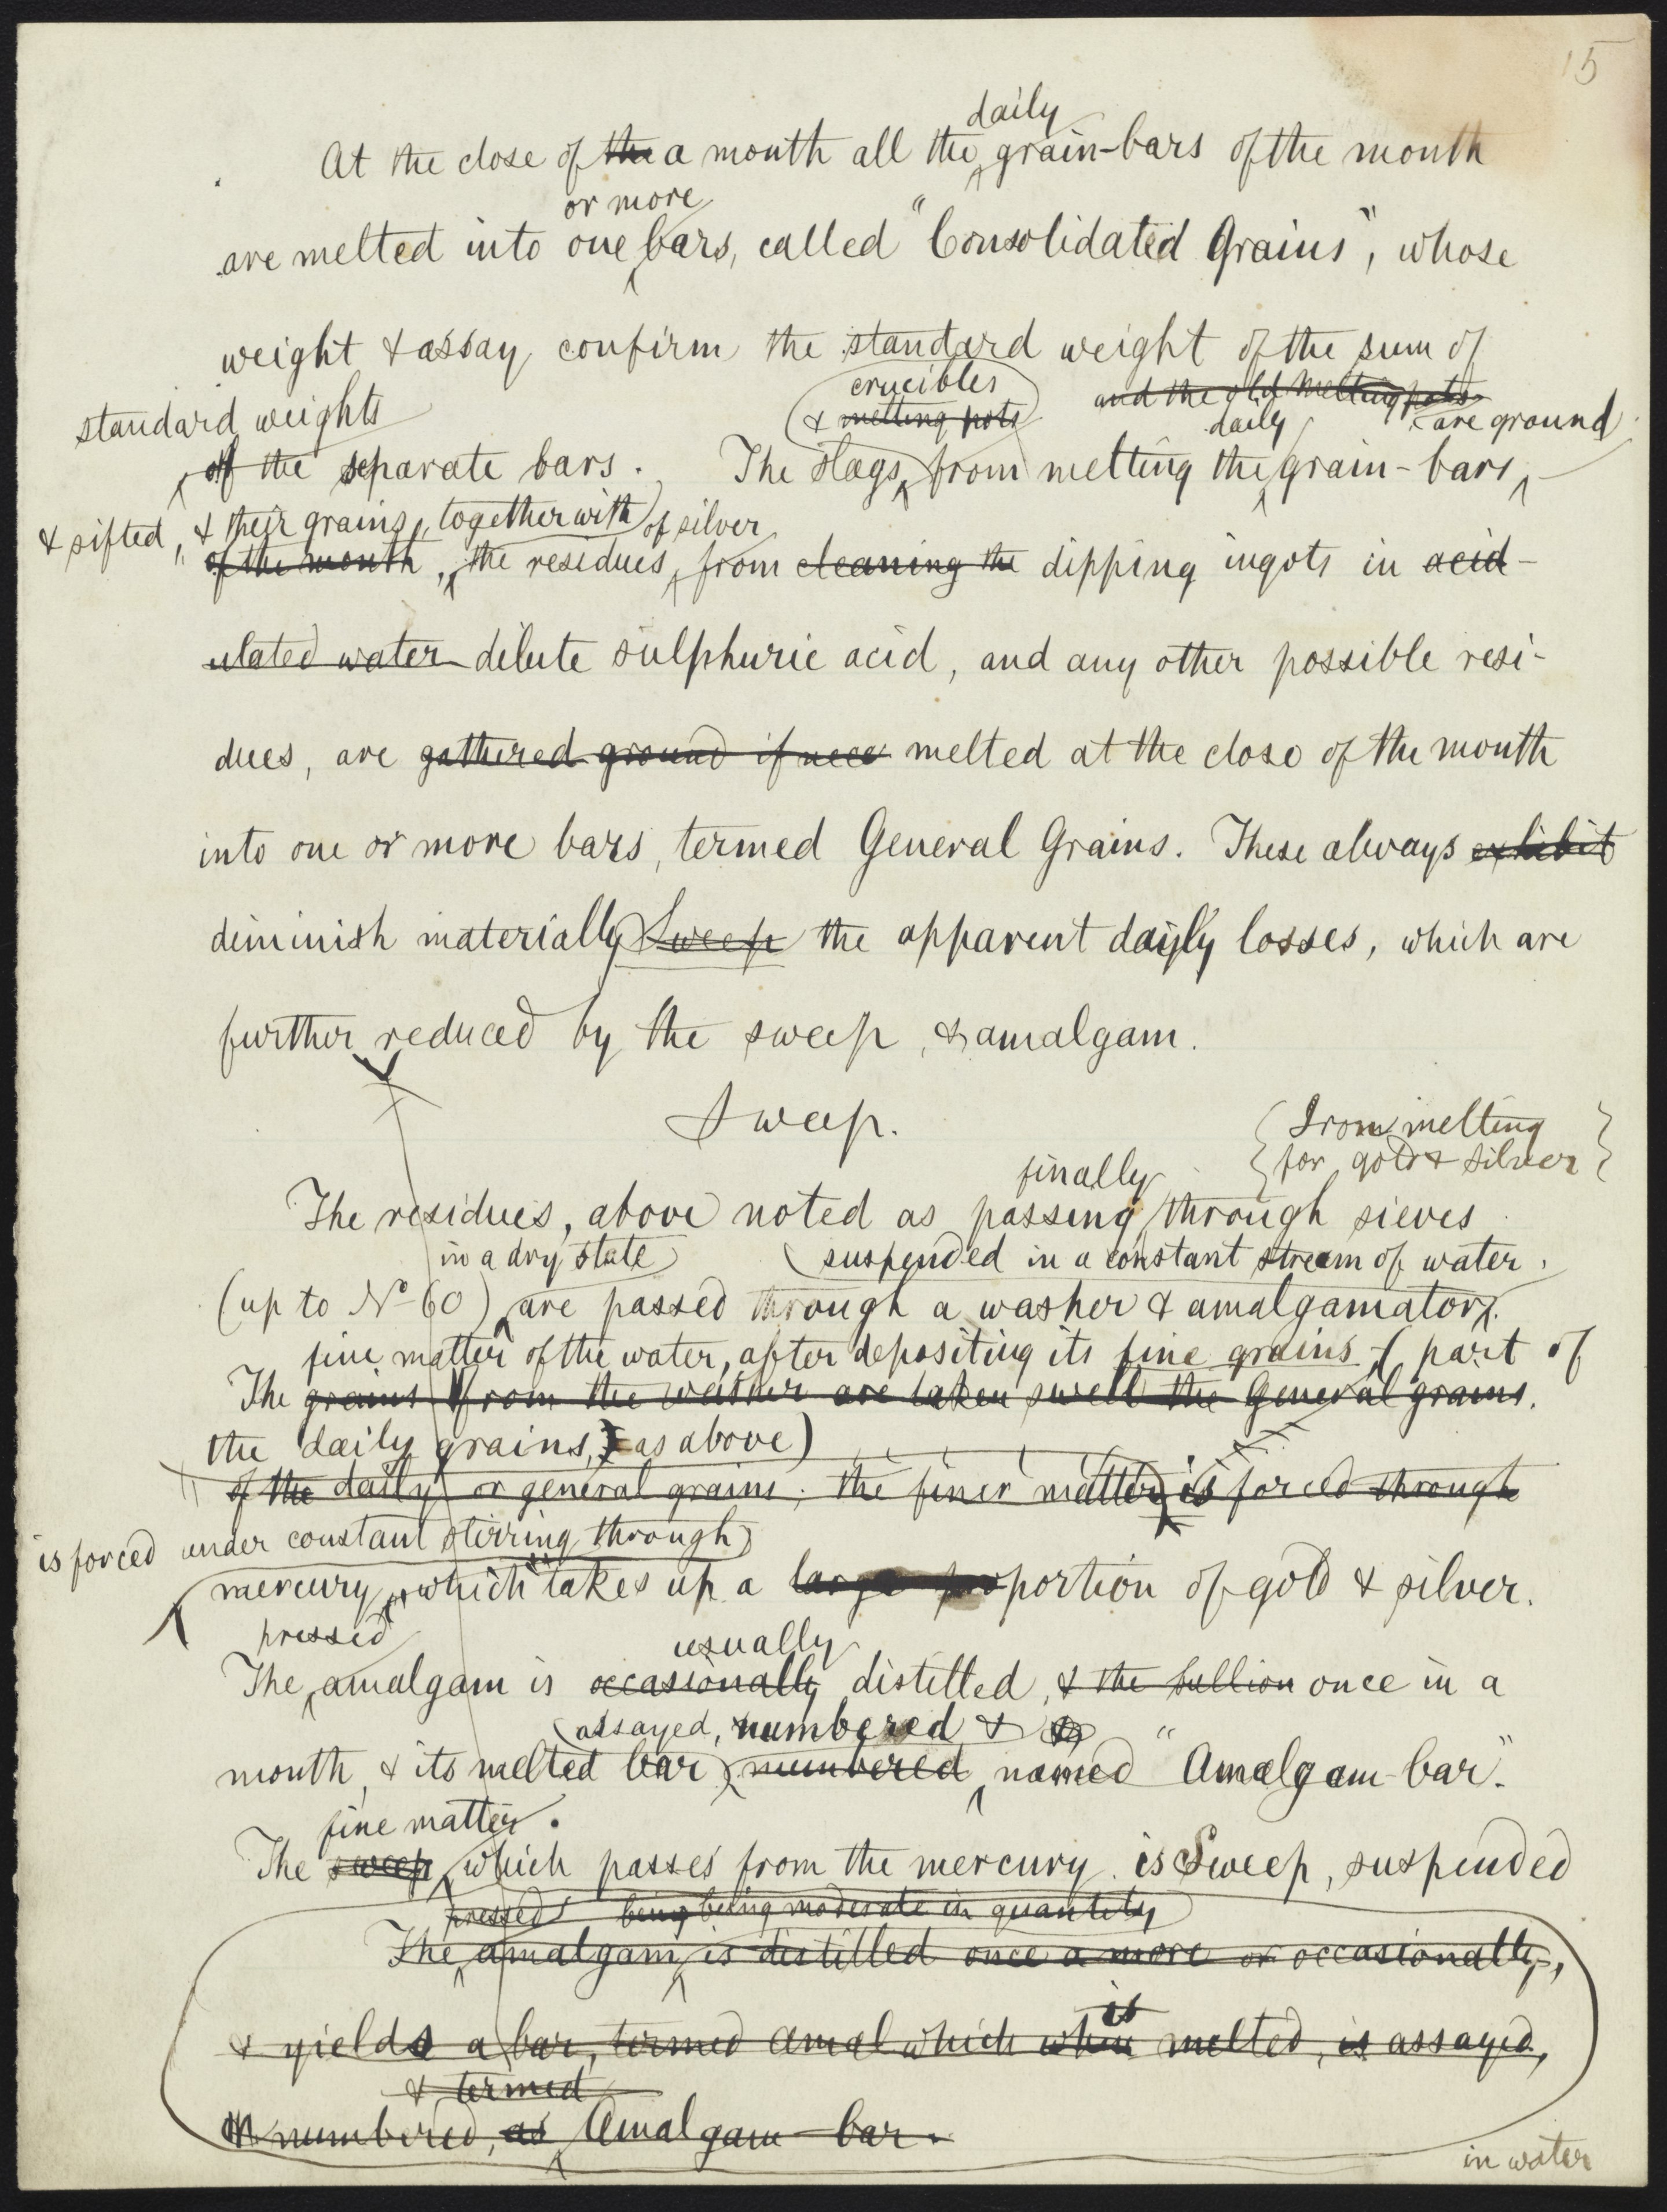 15
daily
At the close of the a month all the grain-bars of the month
or more
are melted into one bars, called "Consolidated Grains", whose
weight & assay confirm the standard weight of the sum of
crucibles
and the old melting pots
standard weights
& melting pots
daily
are ground
of the separate bars. The slags from melting the grain-bars,
& sifted, & their grains, together with of silver
of the month, the residues, from cleaning the dipping ingots in acid-
ulated water dilute sulphuric acid, and any other possible resi-
dues, are gathered ground if nece melted at the close of the month
into one or more bars, termed General Grains. These always exhibit
diminish materially Sweep the apparent daily losses, which are
further reduced by the sweep, & amalgam.
Sweep.
Iron melting
for gold & silver
finally
The residues, above noted as passing through sieves
in a dry state
suspended in a constant stream of water.
(up to No 60) are passed through a washer & amalgamator.
fine matter of the water, after depositing its fine grains (part of
The grains from the washer are taken swell the General grains.
the daily grains, as above)
of the daily or general grains; the finer matter is forced through
is forced under constant stirring through
mercury, which takes up a large proportion of gold & silver.
pressed
usually
The amalgam is occasionally distilled, & the bullion once in a
assayed, numbered &
month, & its melted bar numbered, named "Amalgam-bar".
fine matter
The sweep, which passes from the mercury is Sweep, suspended
pressed being being moderate in quantity
The amalgam, is distilled once a more or occasionally,
is
& yields a bar, termed Amal which when melted, is assayed,
& termed
numbered, as Amalgam-bar.
in water